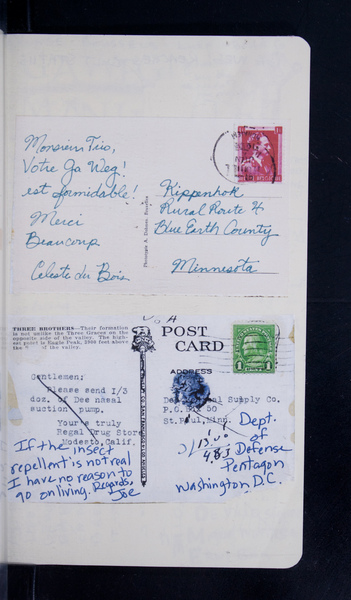 Monsieur Trio,
Votre Ga Weg!
est formidable!
Merci
Beaucoup
Celeste du Bois
Kippenhok
Rural Route 4
Blue Earth County
Minnesota
THREE BROTHERS—Their formation
is not unlike the Three Graces on the
opposite side of the valley. The high-
est point is Eagle Peak, 3900 feet above
the of the valley.
POST
CARD
ADDRESS
1
Gentlemen;
Please send 1/3
doz. of Dee nasal
suction pump.
Yours truly
Regal Drug Store
Modesto, Calif.
Supply Co.
P.O.
St. Paul, Minn.
If the insect
repellent is not real
I have no reason to
go on living. Regards,
Joe
Dept.
of
Defense
Pentagon
Washington D.C.